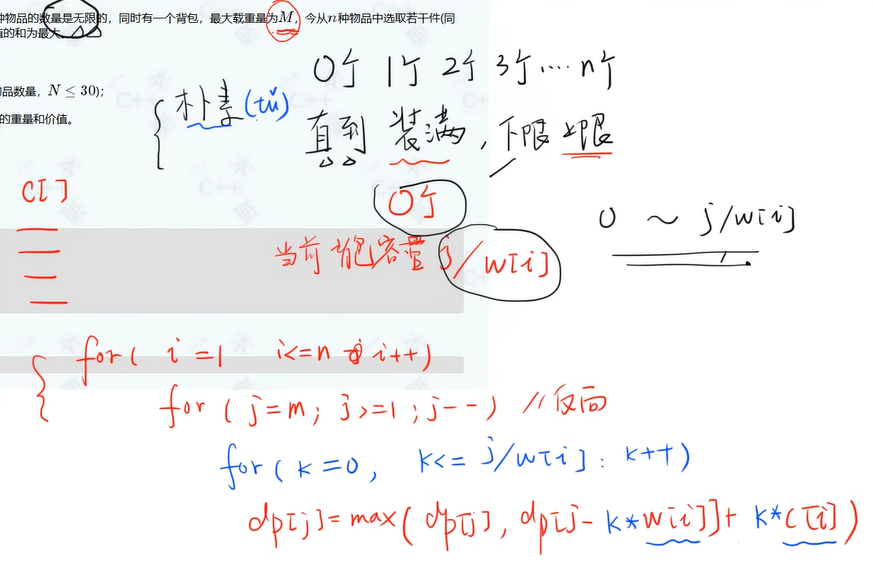 种物品的数量是无限的，同时有一个背包，最大载重量为M，今从n种物品中选取若干件(同
值的和为最大。
品数量，N ≤ 30);
的重量和价值。
0个 1个 2个 3个 .... n个
朴素(tǔ)
直到 装满，下限 上限
C[]
0个
0 ~ j/w[i]
当前背包容量 j/w[i]
for( i=1 i<=n i++)
for( j=m; j>=1; j--) //反面
for( k=0, k<= j/w[i]: k++)
dp[j]=max( dp[j], dp[j- k*w[i]]+ k*c[i])